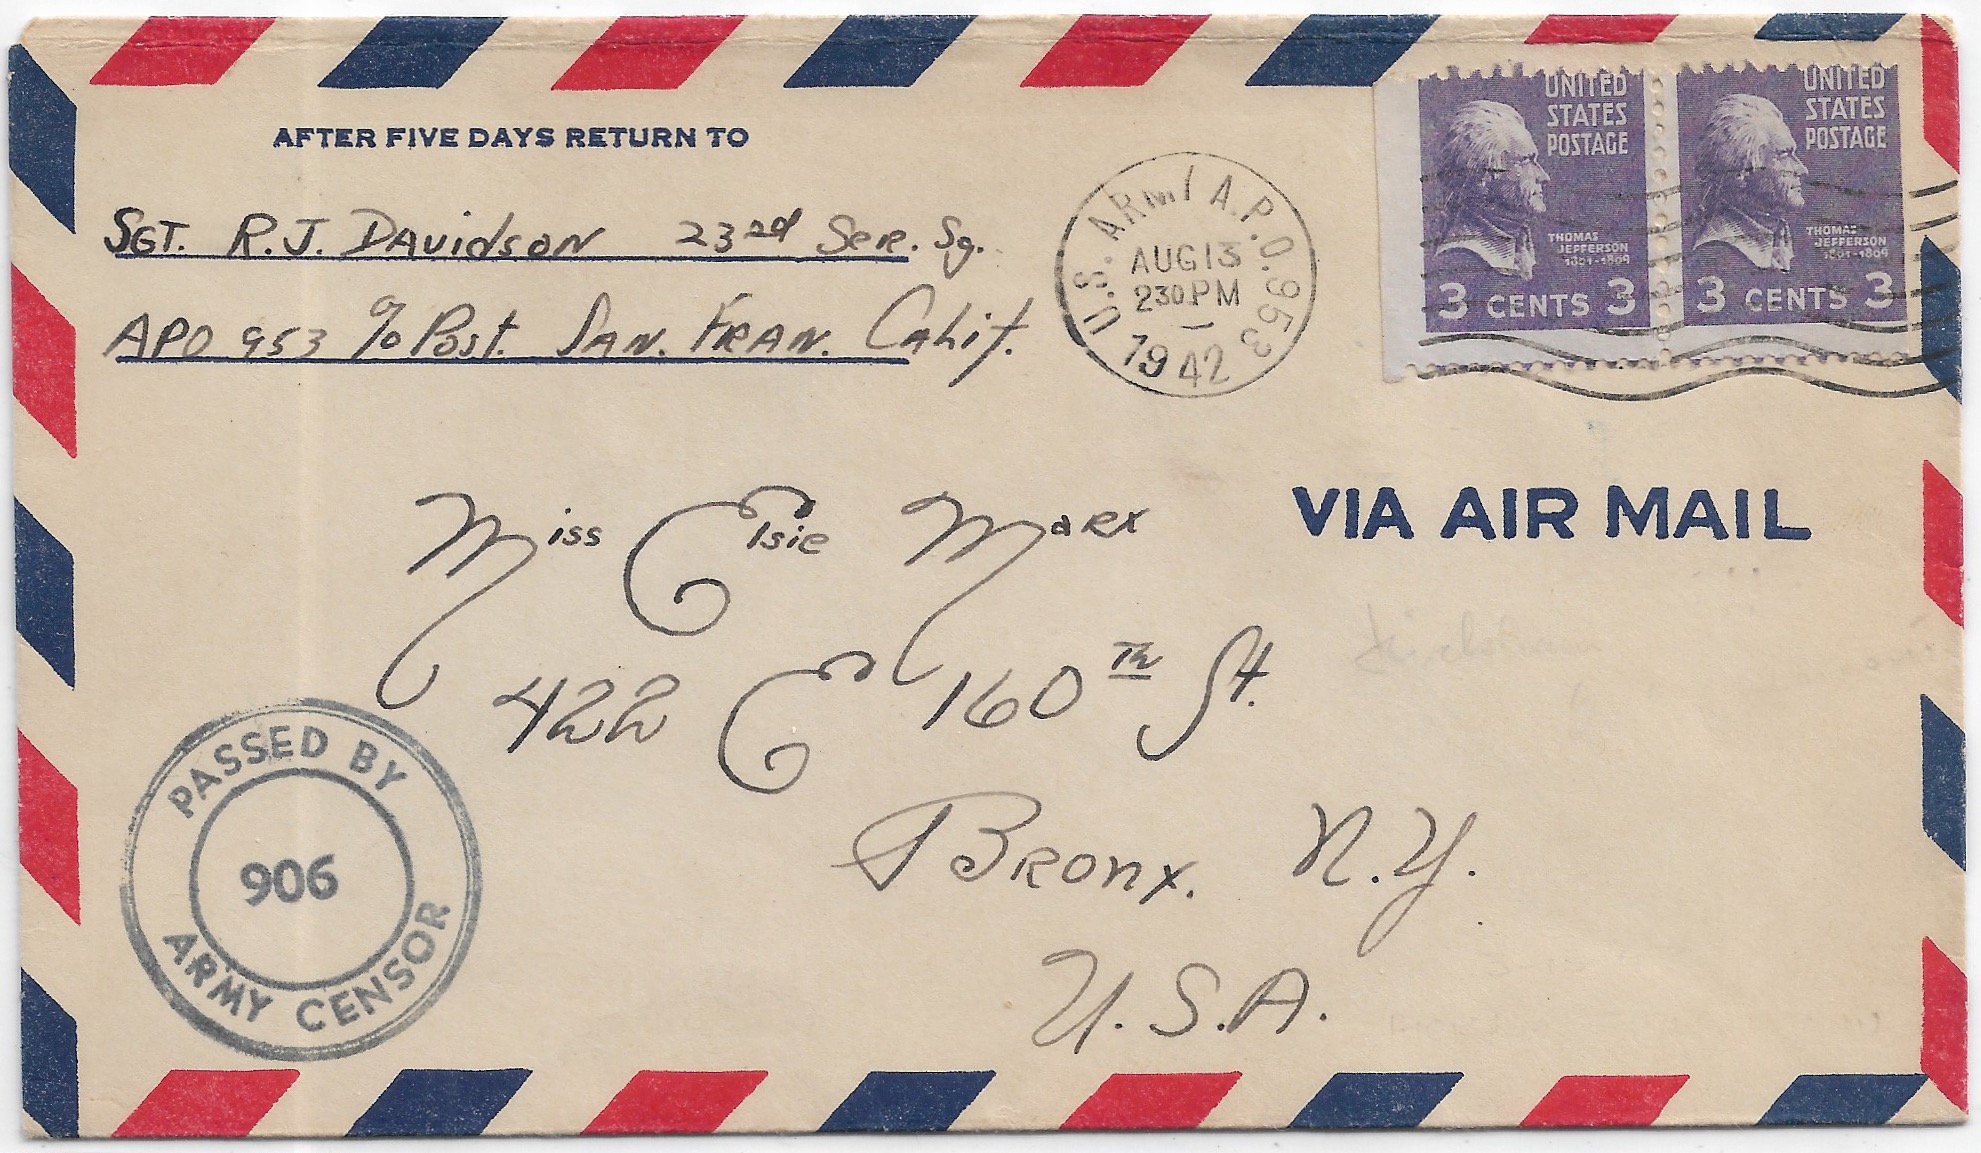 AFTER FIVE DAYS RETURN TO
SGT. R.J. Davidson 23rd Ser. Sq.
APO 953 % Post. San. Fran. Calif.
U.S. ARMY A.P.O. 953
AUG 13
230 PM
1942
UNITED
STATES
POSTAGE
THOMAS
JEFFERSON
1801-1809
3 CENTS 3
UNITED
STATES
POSTAGE
THOMAS
JEFFERSON
1801-1809
3 CENTS 3
VIA AIR MAIL
Miss Elsie Marx
422 E 160TH St.
Bronx. N.Y.
U.S.A.
PASSED BY
906
ARMY CENSOR